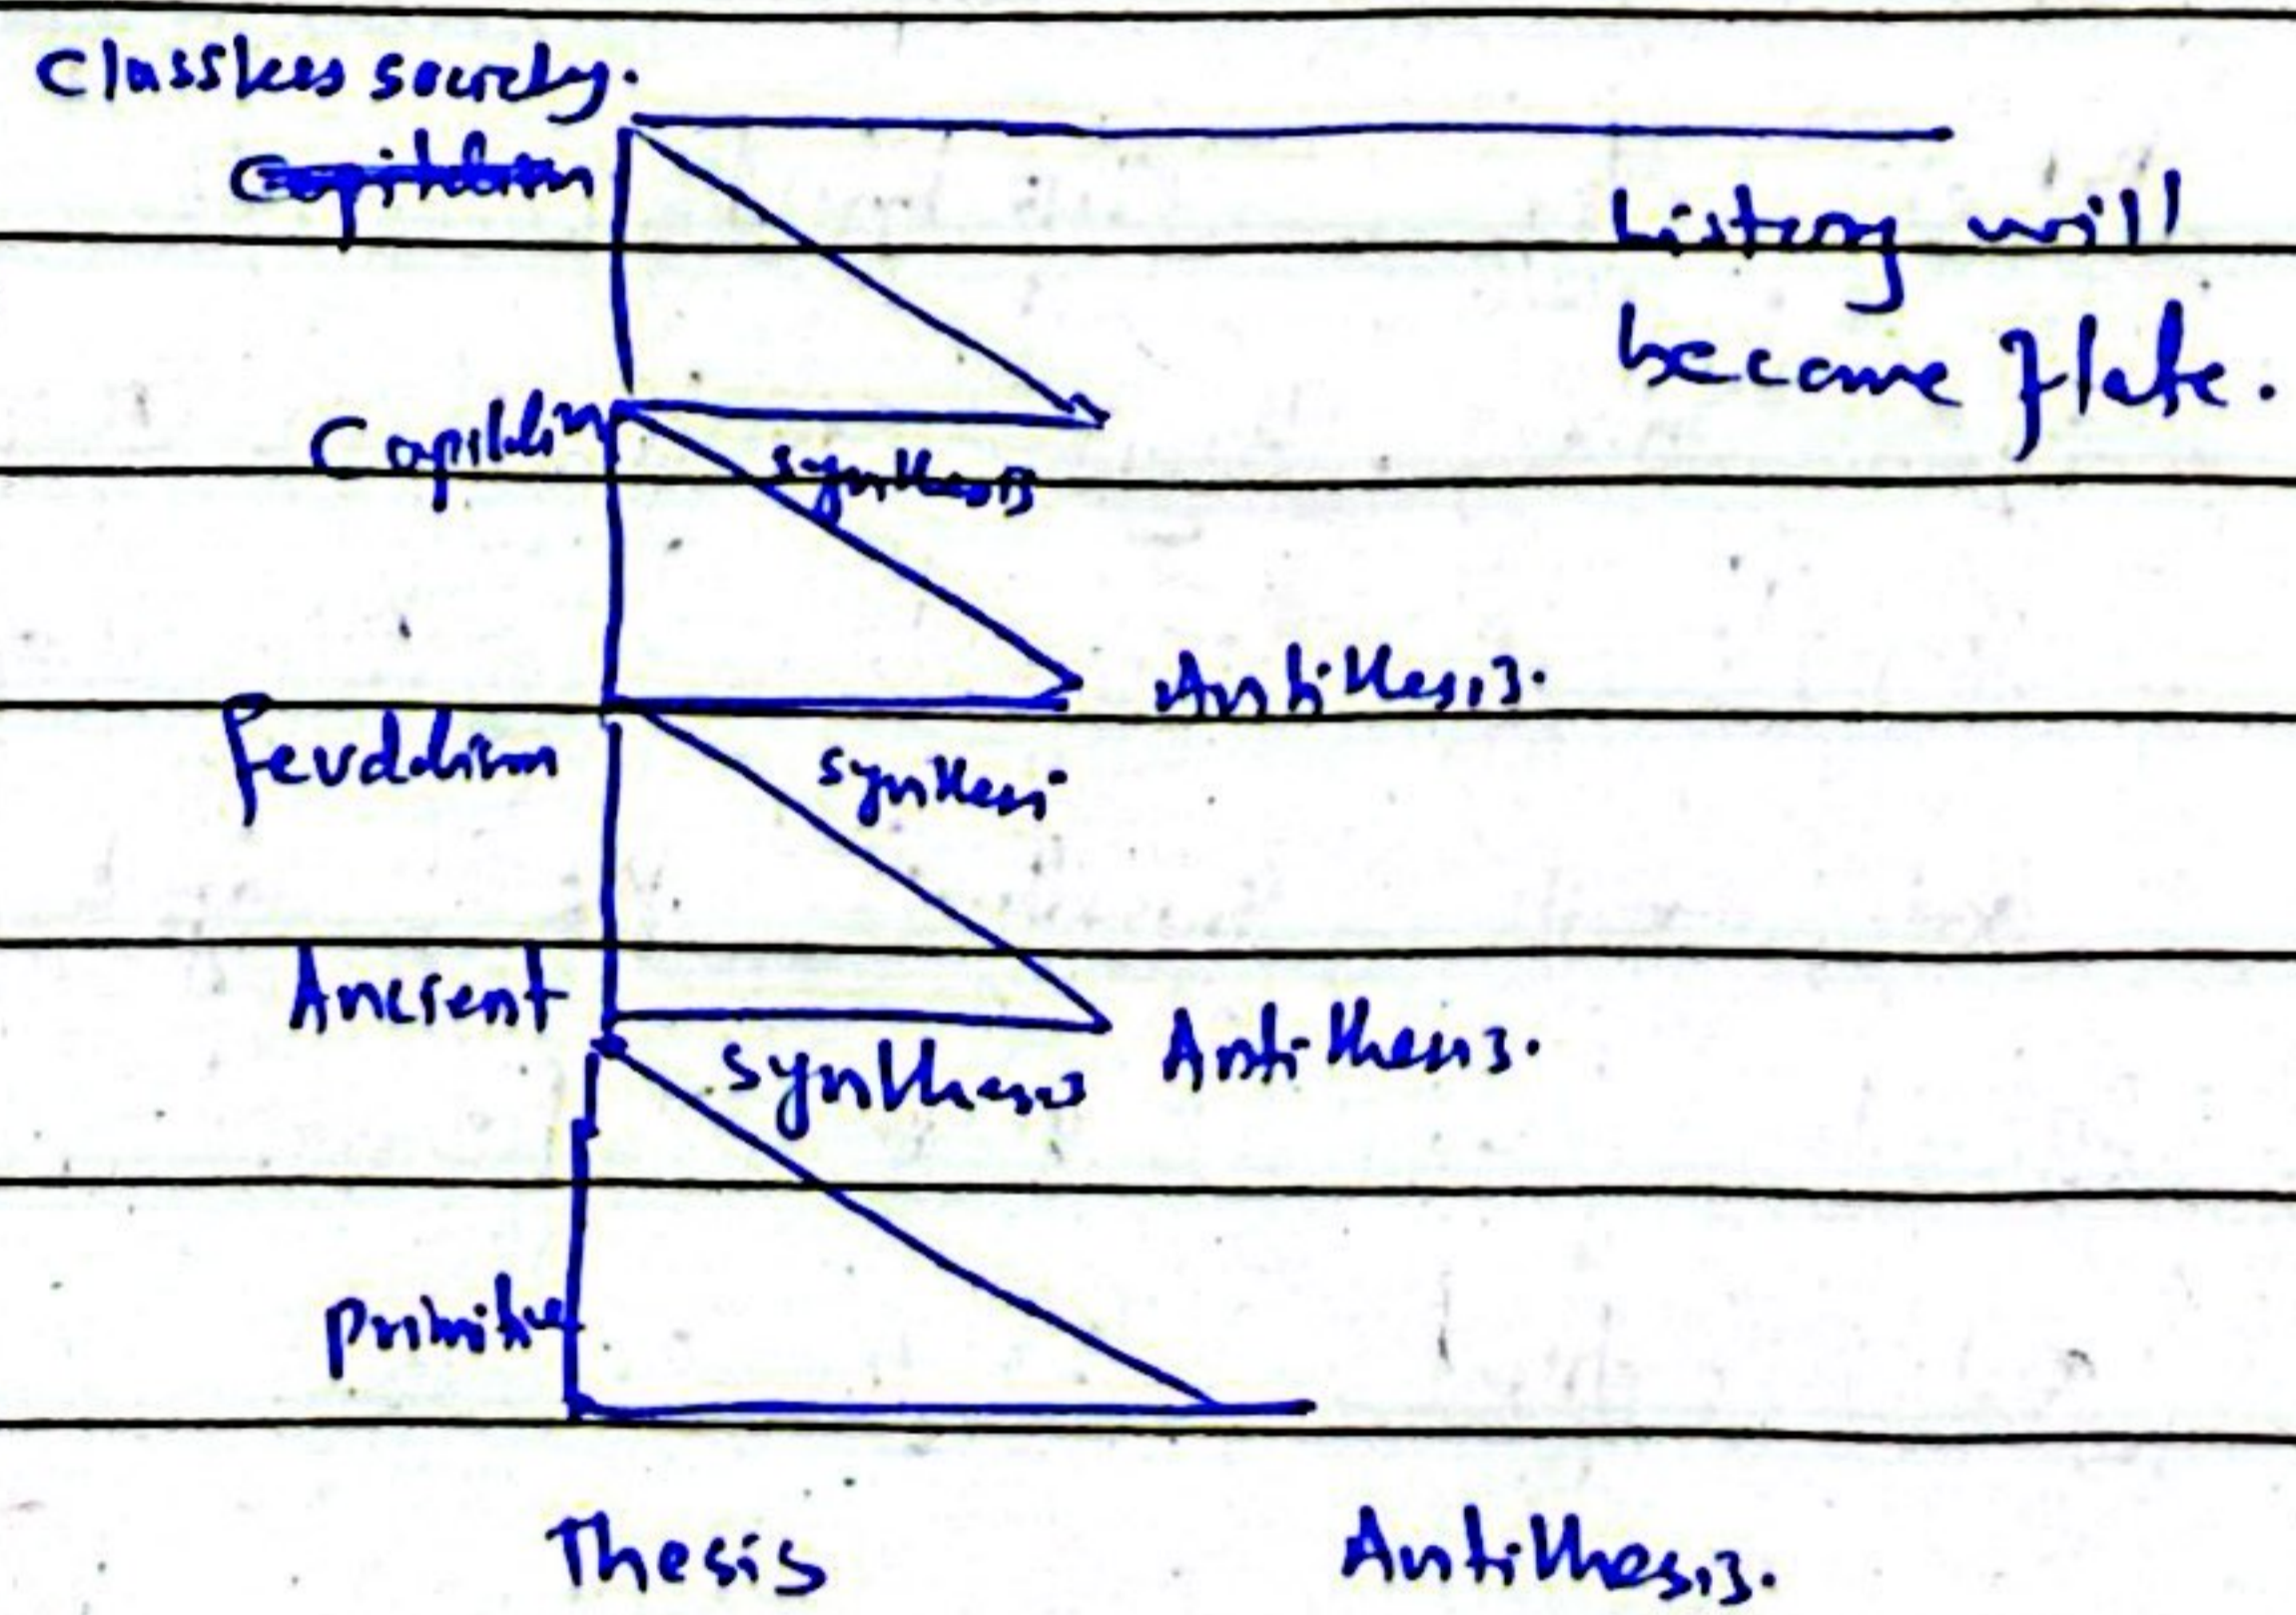 Classless society.
Capitalism
history will
become flate.
Capitalism
synthesis
Antithesis.
feudalism
synthesis
Ancient
synthesis
Antithesis.
primitive
Thesis
Antithesis.